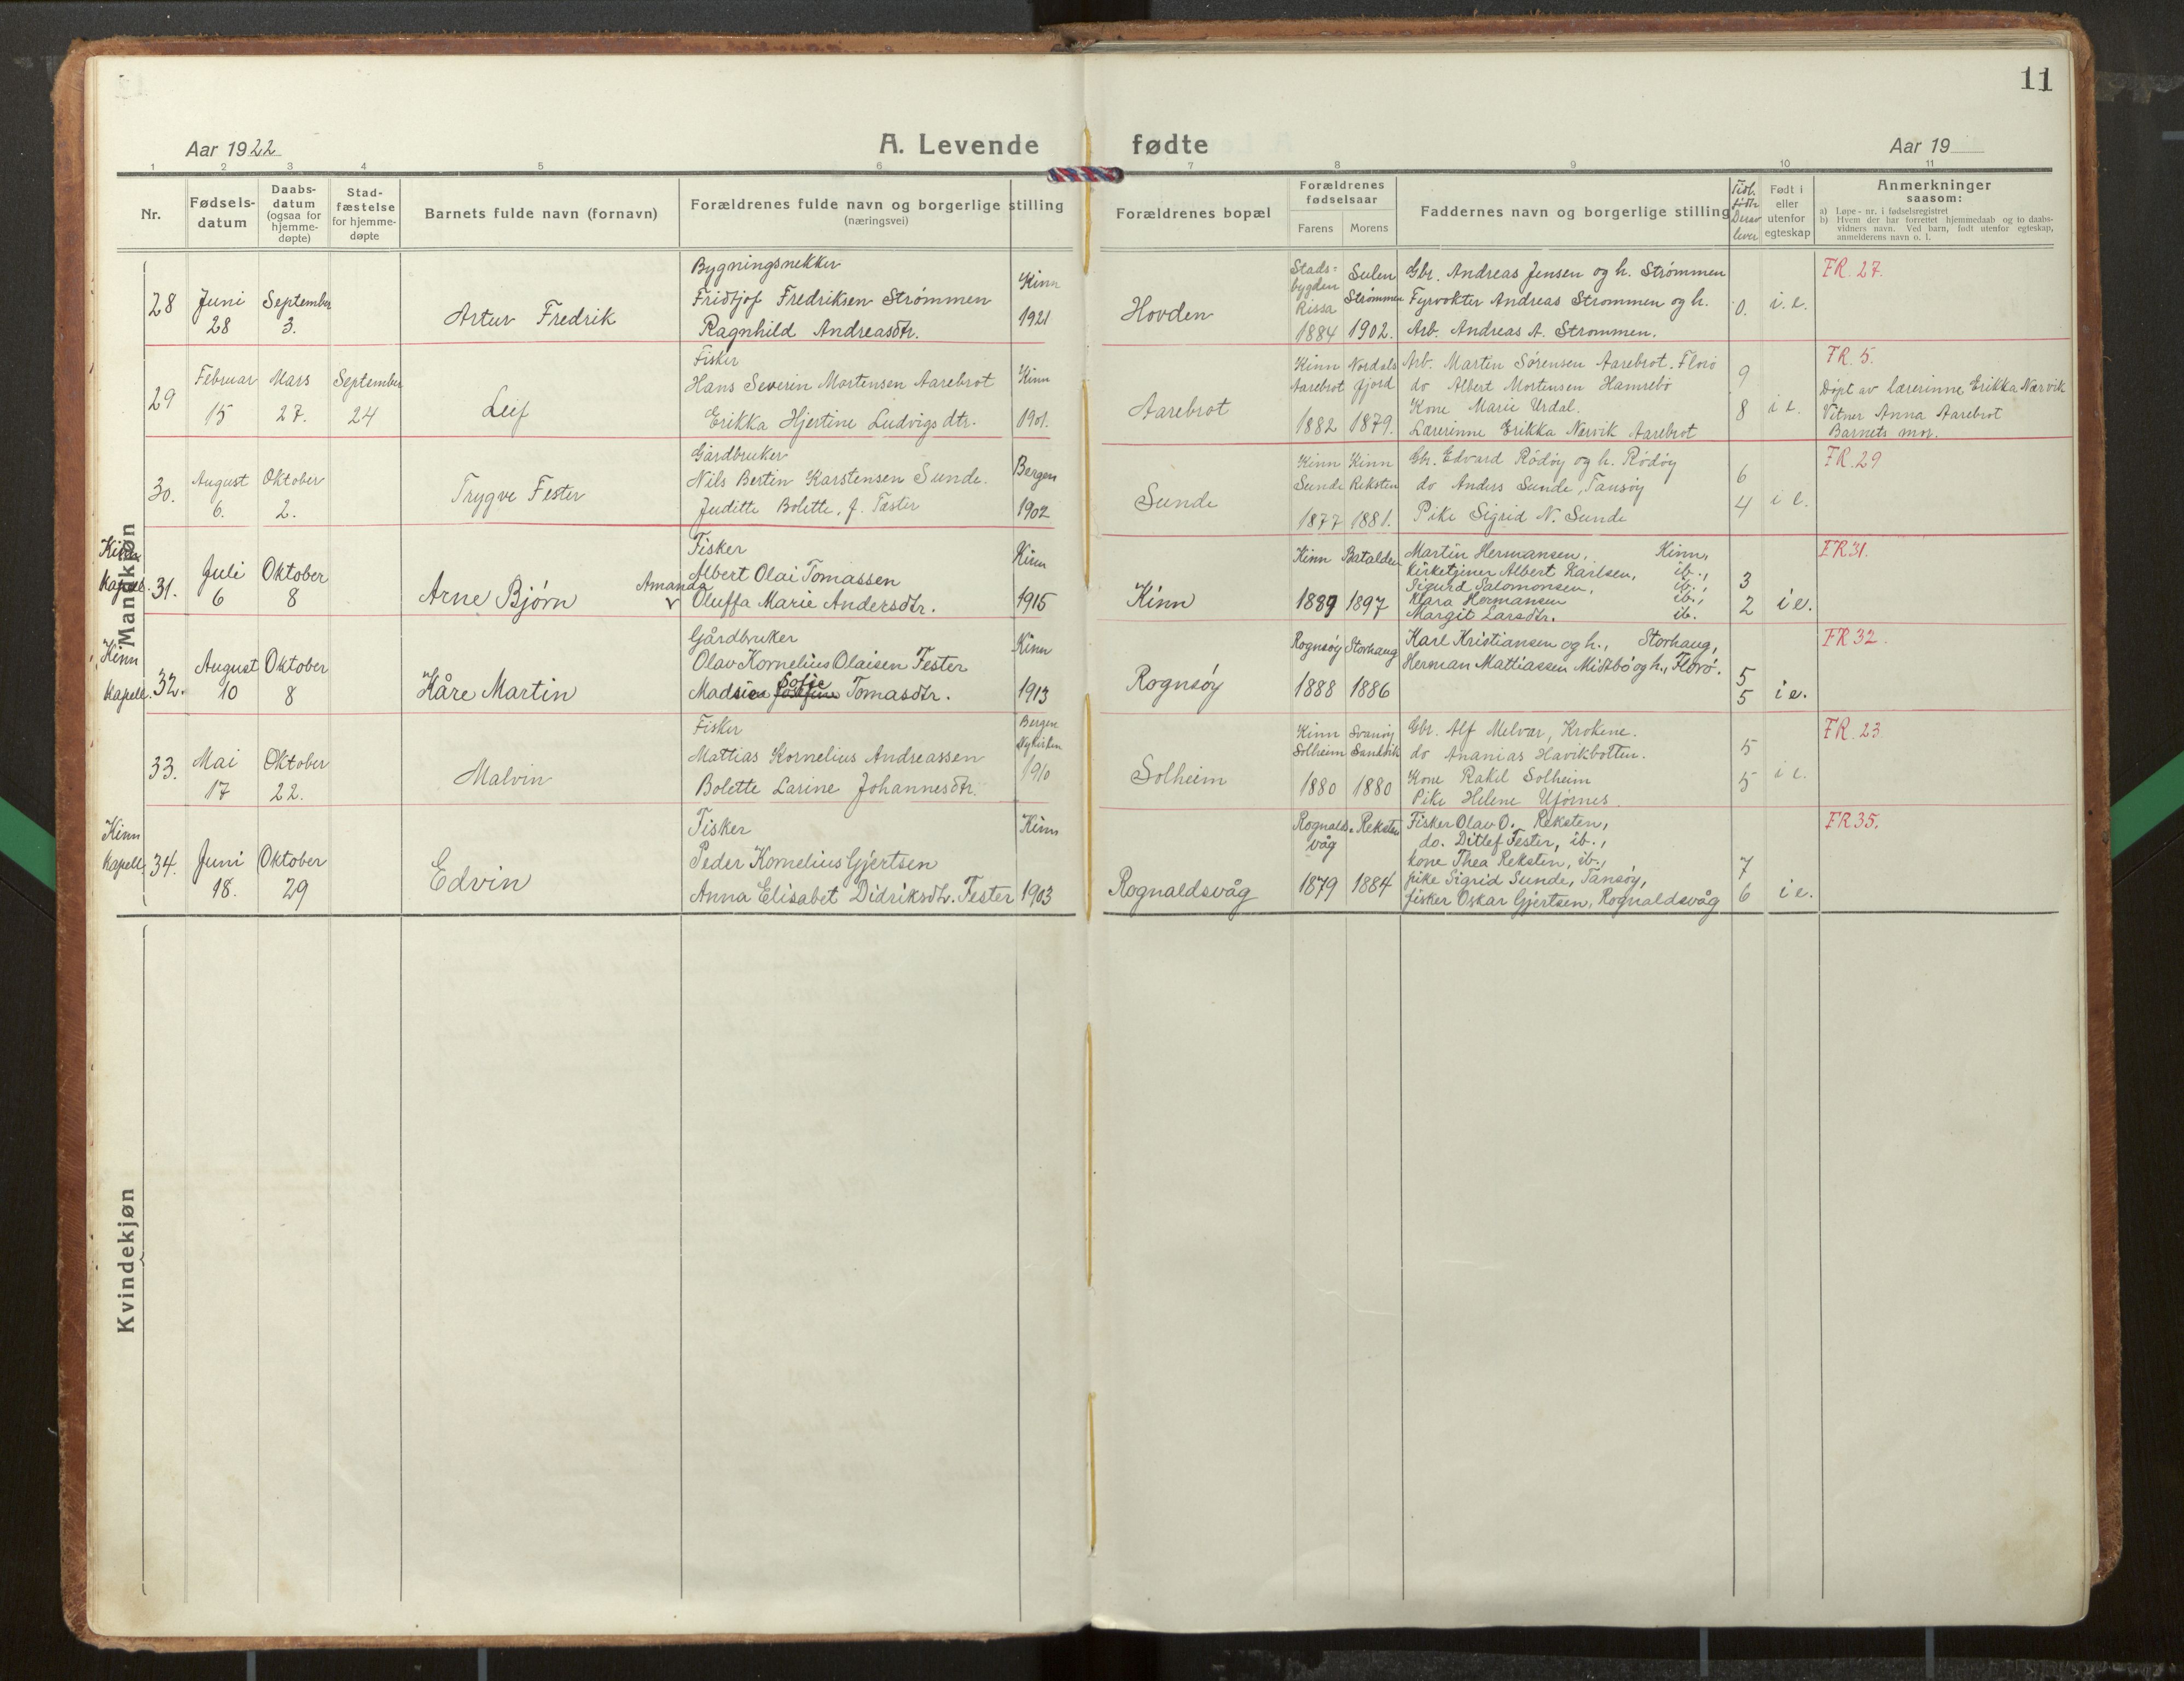 11
Aar 1922
A. Levende fødte
Aar 19
1 2 3 4 5 6 7 8 9 10 11
Nr.
Fødsels-
datum
Daabs-
datum
(ogsaa for
hjemme-
døpte)
Stad-
fæstelse
for hjemme-
døpte
Barnets fulde navn (fornavn)
Forældrenes fulde navn og borgerlige stilling
(næringsvei)
Forældrenes bopæl
Forældrenes
fødselsaar
Farens Morens
Faddernes navn og borgerlige stilling
Tidl.
födte
Derav
lever
Født i
eller
utenfor
egteskap
Anmerkninger
saasom:
a) Løpe-nr. i fødselsregistret
b) Hvem der har forrettet hjemmedaab og to daabs-
vidners navn. Ved barn, født utenfor egteskap,
anmelderens navn o. l.
Mandkjøn
28
Juni
28
September
3.
Artur Fredrik
Bygningsnekker
Fridtjof Fredriksen Strömmen
Ragnhild Andreasdtr.
Kinn
1921
Hovden
Stads=
bygden
Rissa
1884
Sulen
Strömmen
1902.
Gbr. Andreas Jensen og h. Strömmen
Fyrvokter Andreas Strommen og h.
Arb. Andreas A. Strommen.
0.
i. e.
FR. 27.
29
Februar
15
Mars
27.
September
24
Leif
Fisker
Hans Severin Mortensen Aarebrot
Erikka Hjertine Ludvigsdtr.
Kinn
1901.
Aarebrot
Kinn
Aarebrot
1882
Nordals
fjord
1879.
Arb. Martin Sörensen Aarebrot. Florö
do Albert Mortensen Hamrebö
Kone Marie Urdal.
Lærerinne Erikka Nærvik Aarebrot
9
8
i e.
FR. 5.
Döpt av lærerinne Erikka Nærvik
Vitner Anna Aarebrot
Barnets mor.
30.
August
6.
Oktober
2.
Trygve Fester
Gårdbruker
Nils Bertin Karstensen Sunde.
Juditte Bolette, f. Tæster
Bergen
1902
Sunde
Kinn
Sunde
1877
Kinn
Reksten
1881.
Gbr. Edvard Rödöy og h. Rödöy
do Anders Sunde, Tansöy
Pike Sigrid N. Sunde
6
4
i e.
FR. 29
Kinn
kapell.
31.
Juli
6
Oktober
8
Arne Bjørn
Fisker
Albert Olai Tomassen
Amanda
Oluffa Marie Andersdtr.
Kinn
1915
Kinn
Kinn
1889
Batalden
1897
Martin Hermansen, Kinn,
kirketjener Albert Karlsen, ib.,
Sigurd Salomonsen, ib.,
Klara Hermansen ib.,
Margit Larsdtr. ib.
3
2
i e.
FR 31.
Kinn
kapell.
32.
August
10
Oktober
8
Kåre Martin
Gårdbruker
Olav Kornelius Olaisen Fester
Sofie
Madsine Josefine Tomasdtr.
Kinn
1913
Rognsöy
Rognsöy
1888
Storhaug
1886
Karl Kristiansen og h., Storhaug,
Herman Mattiassen Midtbö og h., Florö.
5
5
i e.
FR 32.
33.
Mai
17
Oktober
22.
Malvin
Fisker
Mattias Kornelius Andreassen
Bolette Larine Johannesdtr.
Bergen
Nykirken
1910
Solheim
Kinn
Solheim
1880
Svanöy
Sandvik
1880
Gbr. Alf Melvær, Krokene.
do Ananias Havikbotten.
Kone Rakel Solheim
Pike Helene Ufornes.
5
5
i e.
FR. 23
Kinn
kapell.
34.
Juni
18.
Oktober
29
Edvin
Fisker
Peder Kornelius Gjertsen
Anna Elisabet Didriksdtr. Fester
Kinn
1903
Rognaldsvåg
Rognalds=
våg
1879
Reksten
1884
Fisker Olav O. Reksten,
do. Ditlef Fester, ib.,
kone Thea Reksten, ib.,
pike Sigrid Sunde, Tansöy,
fisker Oskar Gjertsen, Rognaldsvåg
7
6
i e.
FR 35.
Kvindekjøn